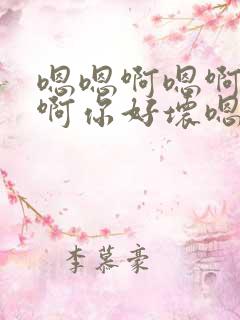 嗯嗯啊嗯啊
啊你好壞嗯
李慕豪